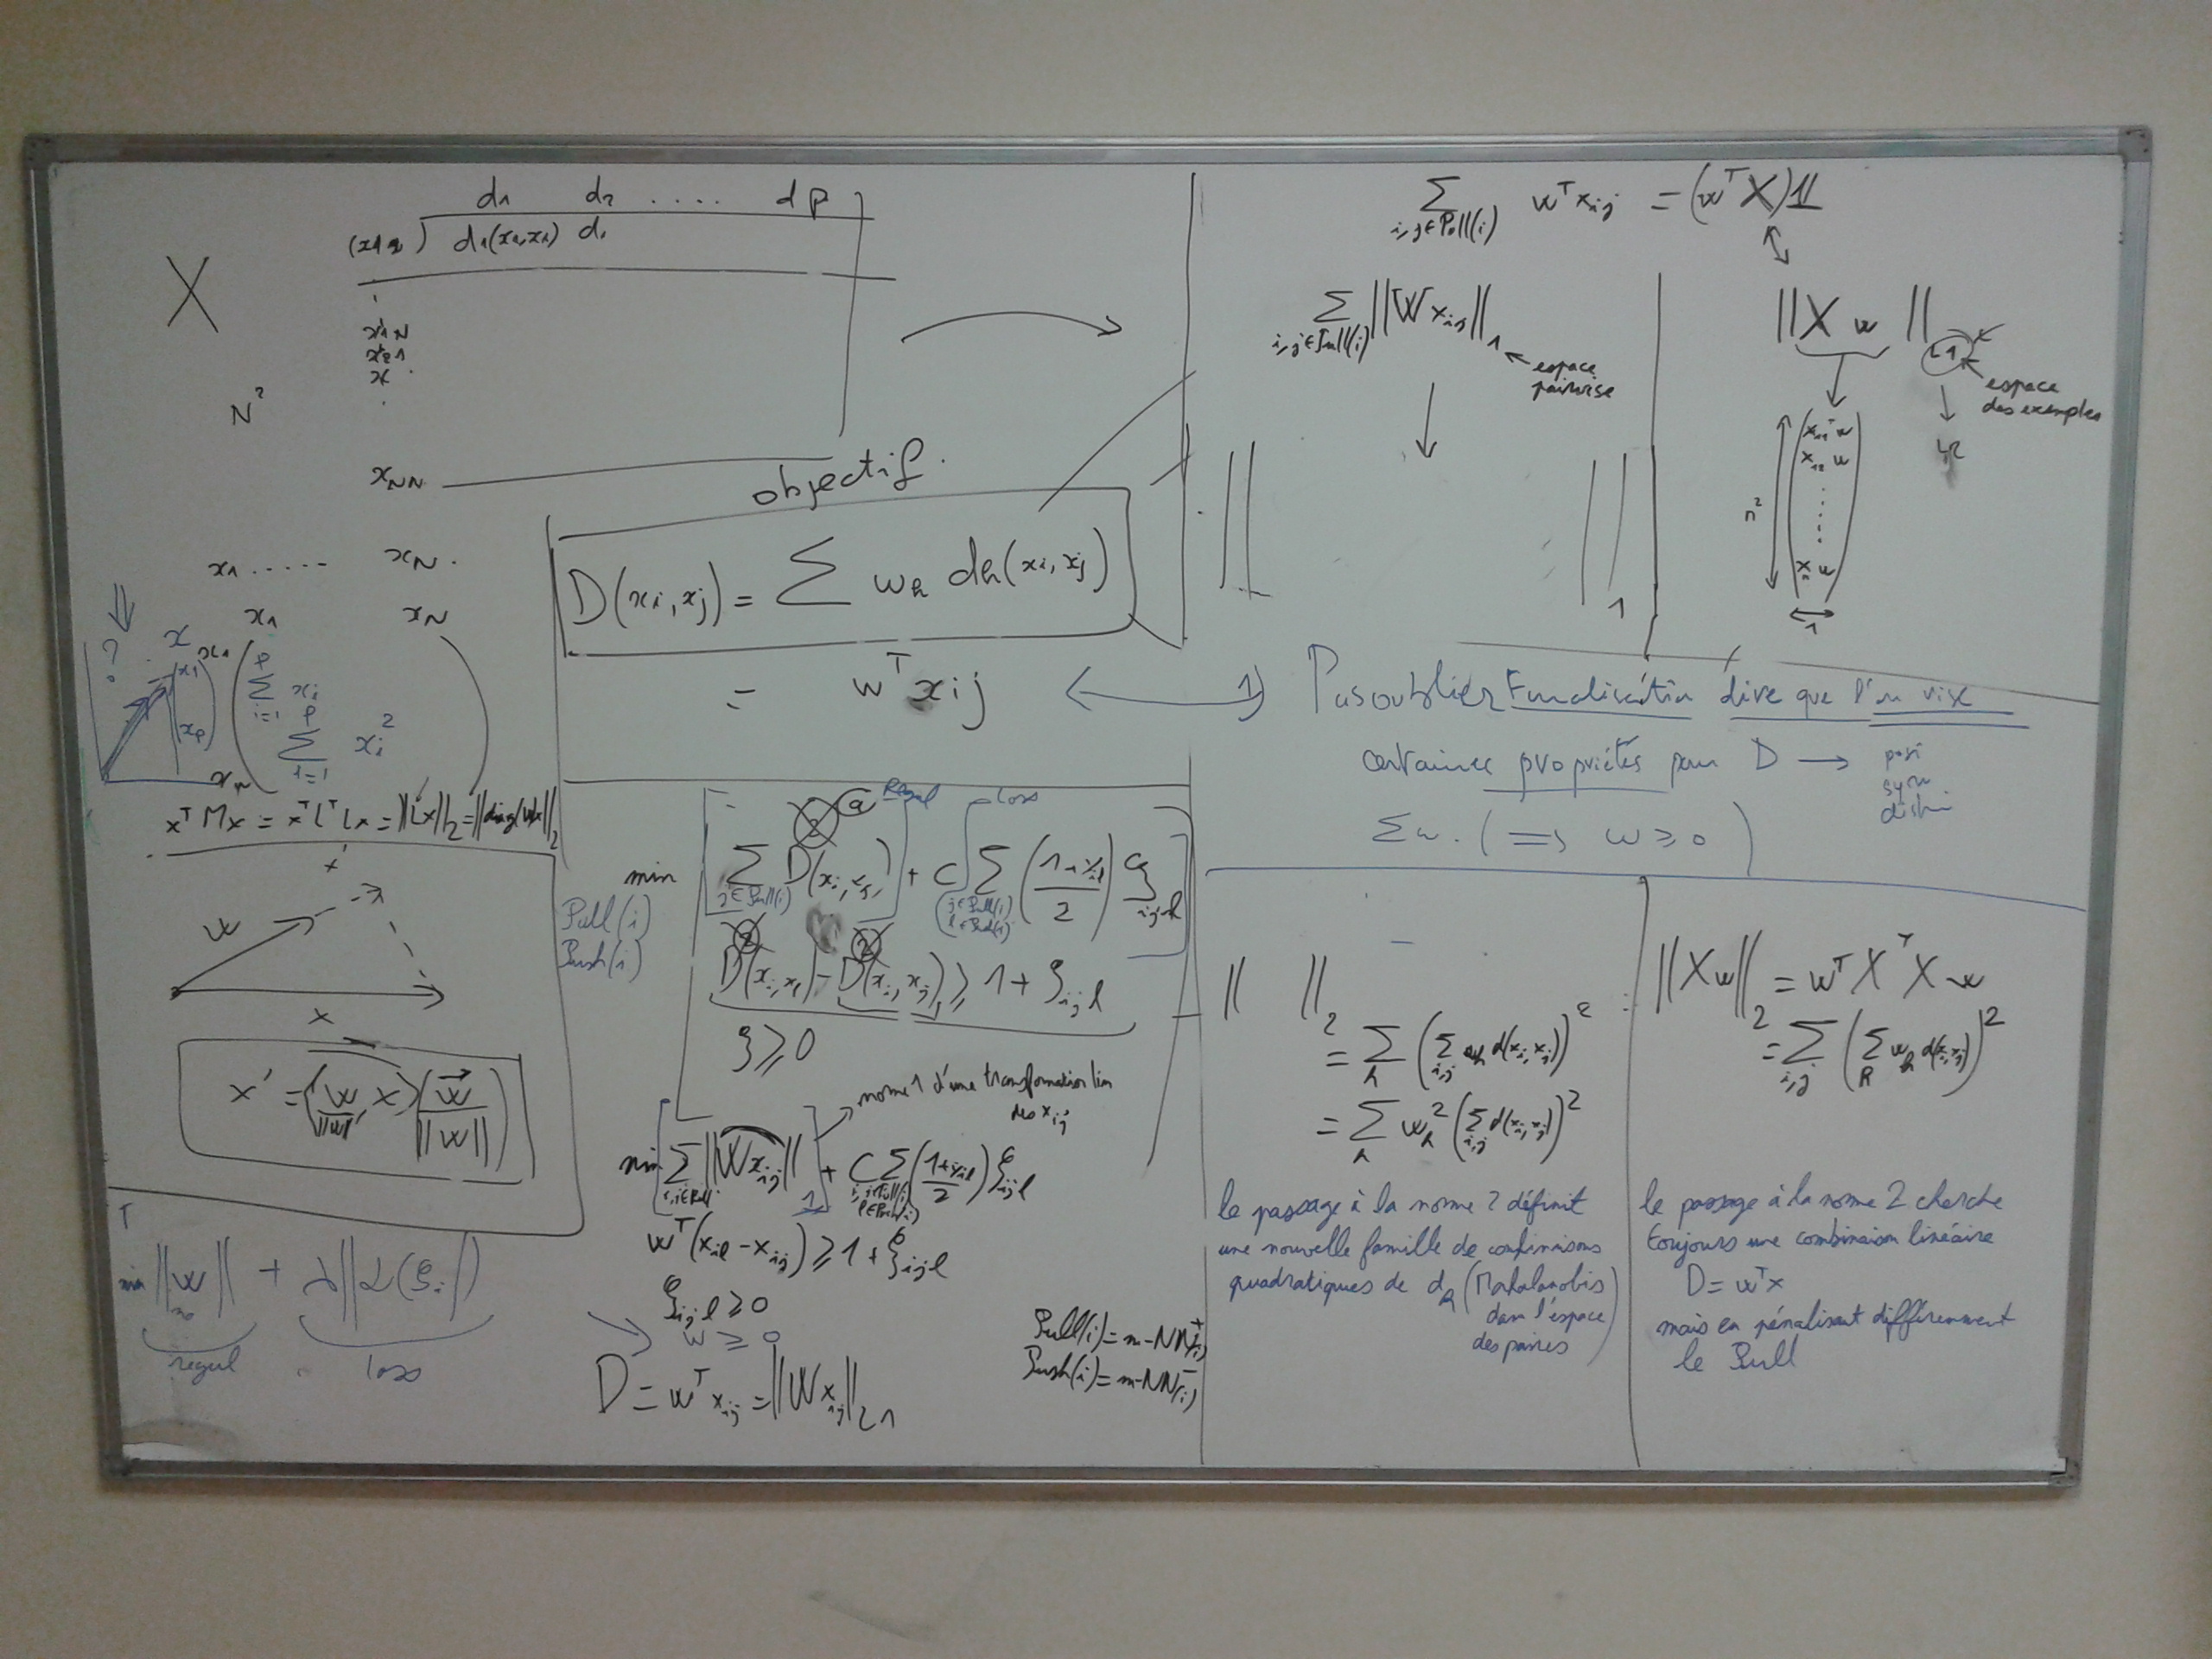 d1 d2 .... dp
(x1x2) d1(x1,x1) d1
X
x1N
x21
x
N²
xNN
objectif.
D(xi,xj) = ∑ wk dk(xi,xj)
= w^T xij
x1 ..... xN.
x1 xN
? x x1
(x1
xp)
∑_{i=1}^{p} xi
∑_{i=1}^{p} xi²
xN
x^T M x = x^T L^T L x = ||Lx||_2 = ||diag(w)x||_2
x'
w
x
x' = (w/||w||, x) (w/||w||)
T
min ||w|| + λ||L(ξi)||
regul loss
Regul loss
min ∑_{j∈Pull(i)} D(xi,xj) + C ∑_{j∈Pull(i) l∈Push(i)} ((1+yil)/2) ξijl
Pull(i)
Push(i)
D(xi,xl) - D(xi,xj) ≥ 1 + ξijl
ξ ≥ 0
norme 1 d'une transformation lin
des xij
min ∑_{i,j∈Pull} ||W xij||_1 + C ∑_{i,j∈Pull(i) l∈Push(i)} ((1+yil)/2) ξijl
w^T(xil - xij) ≥ 1 + ξijl
ξijl ≥ 0
w ≥ 0
D = w^T xij = ||W xij||_{L1}
Pull(i) = m-NN^+(i)
Push(i) = m-NN^-(i)
∑_{i,j∈Pull(i)} w^T xij = (w^T X)𝟙
∑_{i,j∈Pull(i)} ||W xij||_1
espace
pairwise
|| ||_1
||X w||_{L1}
espace
des exemples
L2
n²
(x11^T w
x12 w
.....
xn w)
1
1) Pas oublier l'indication dire que l'on vise
certaines propriétés pour D → posi
sym
disti
∑w. (=> w ≥ 0)
|| ||_2
= ∑_k (∑_{i,j} wk d(xi,xj))²
= ∑_k wk² (∑_{i,j} d(xi,xj))²
le passage à la norme 2 définit
une nouvelle famille de combinaisons
quadratiques de dk (Mahalanobis
dans l'espace
des paires)
||Xw||_2 = w^T X^T X w
= ∑_{i,j} (∑_k wk d(xi,xj))²
le passage à la norme 2 cherche
toujours une combinaison linéaire
D = w^T x
mais en pénalisant différemment
le Pull